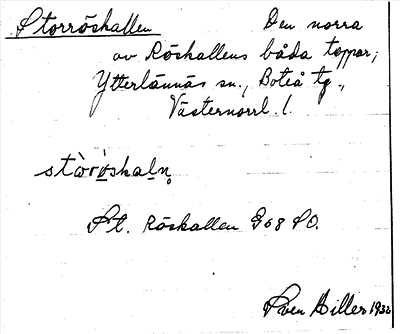 Storröskallen Den norra
av Röskallens båda toppar;
Ytterlännäs sn., Boteå tg.,
Västernorrl. l.
stòròskaln̥
St. Röskallen G 68 SO.
Sven Hiller 1932